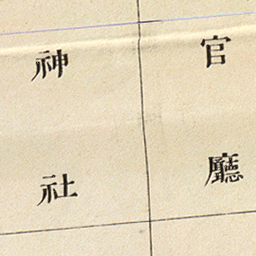 官廳
神社